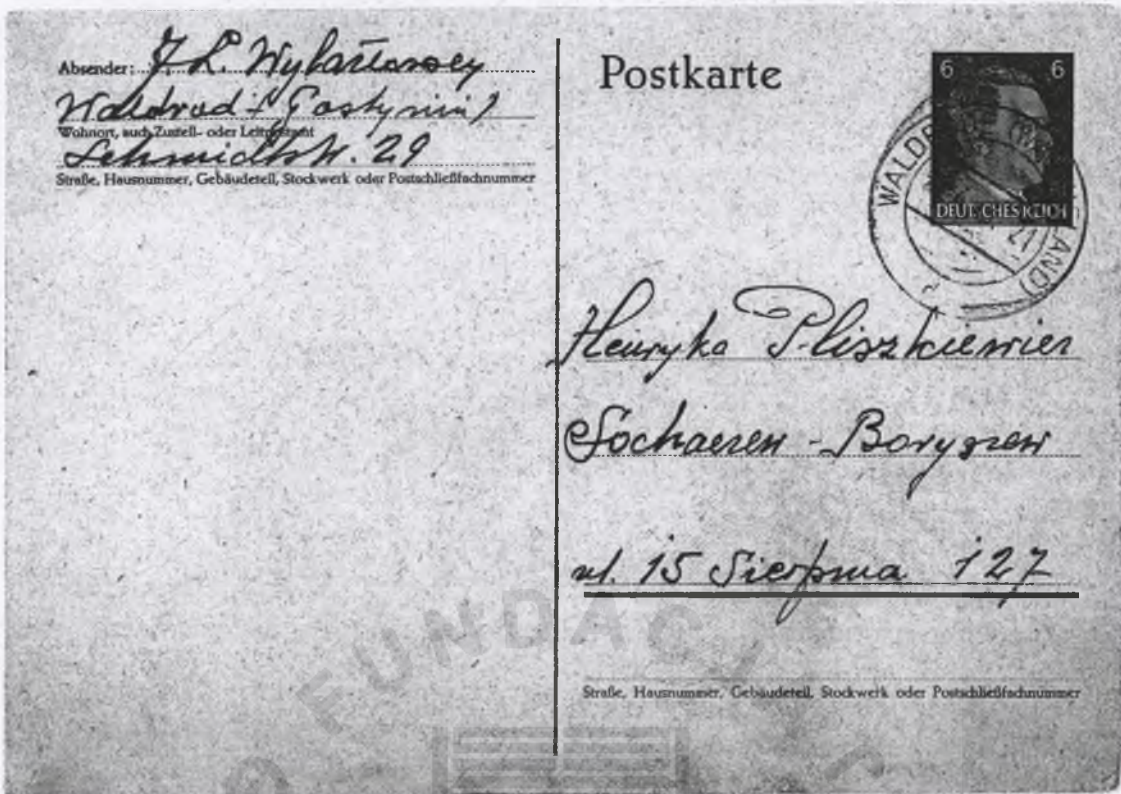 Absender: J. L. Wybańtowscy
Waldrode (Gostynin)
Wohnort, auch Zustell- oder Leitpostamt
Schmidtstr. 29
Straße, Hausnummer, Gebäudeteil, Stockwerk oder Postschließfachnummer
Postkarte
6 6
DEUTSCHES REICH
LAND)
Henryka Pliszkiewicz
Sochaczew - Boryszew
ul. 15 Sierpnia 127
Straße, Hausnummer, Gebäudeteil, Stockwerk oder Postschließfachnummer
FUNDACJA